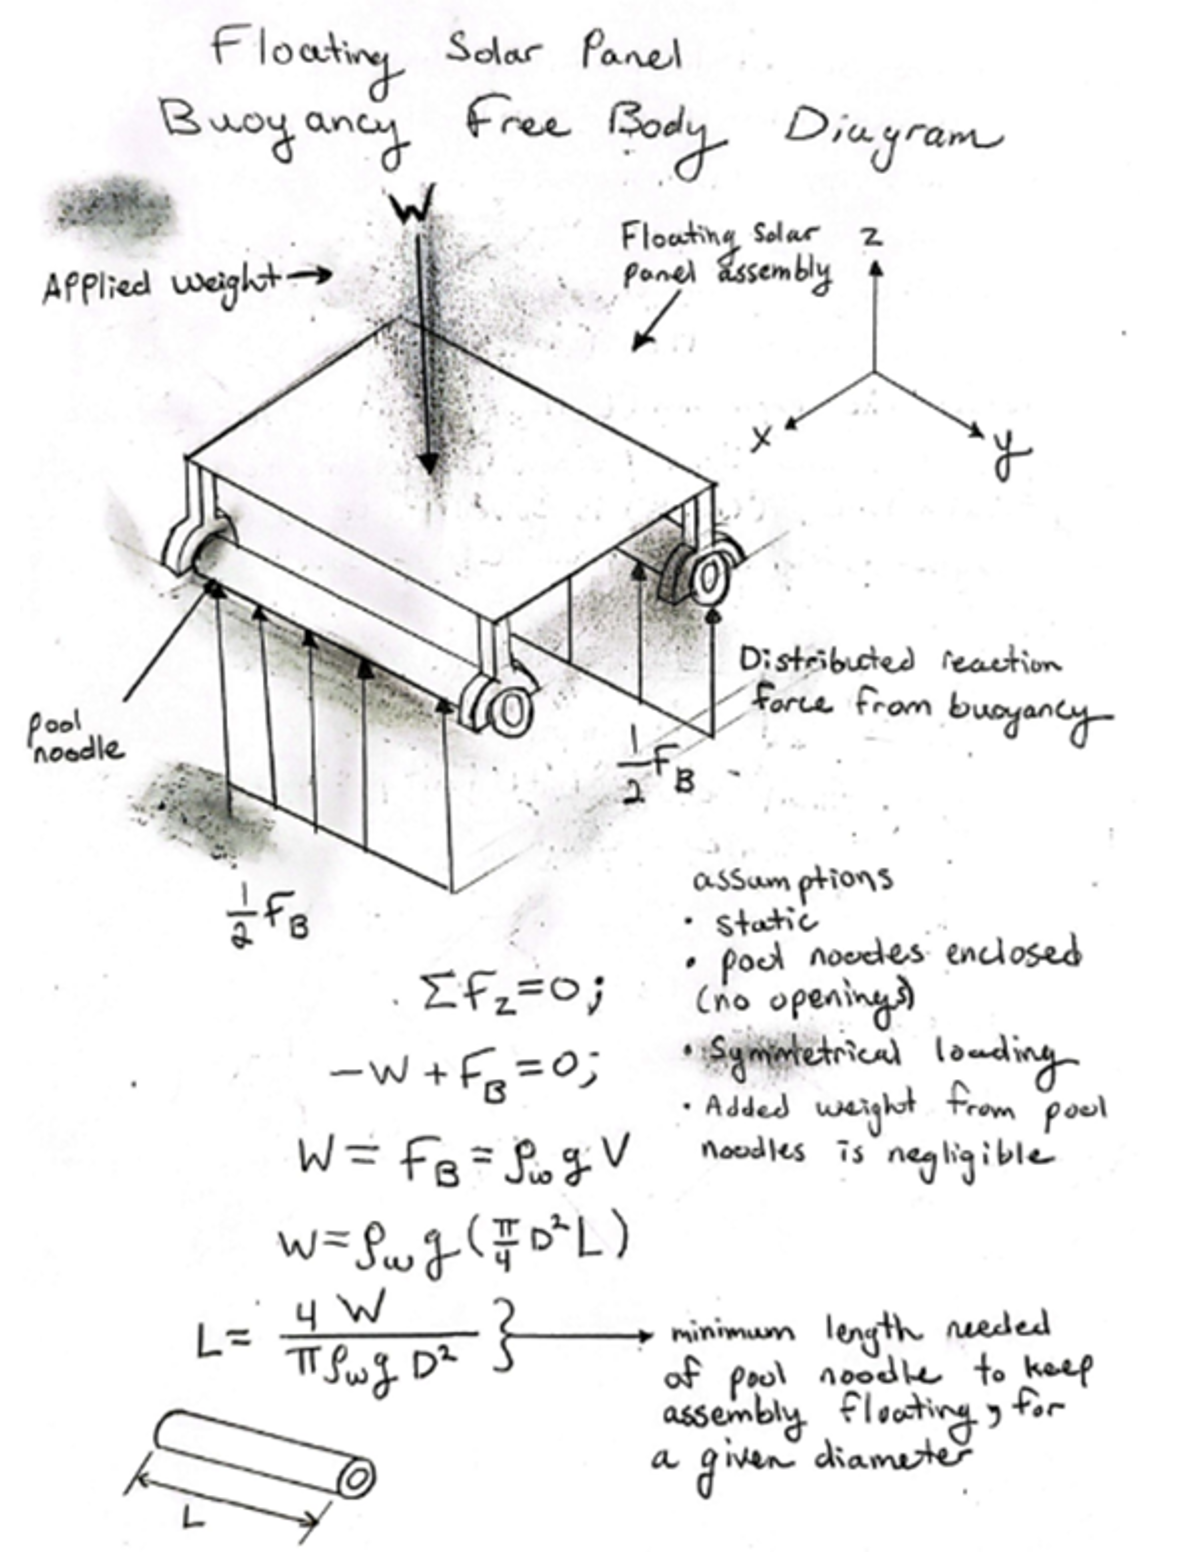 Floating Solar Panel
Buoyancy Free Body Diagram
W
Applied weight →
Floating Solar
panel assembly
z
x
y
pool
noodle
Distributed reaction
force from buoyancy
1/2 F_B
1/2 F_B
assumptions
• static
• pool noodles enclosed
(no openings)
• Symmetrical loading
• Added weight from pool
noodles is negligible
ΣF_z=0;
-W+F_B=0;
W=F_B=ρ_w g V
W=ρ_w g (π/4 D²L)
L= 4W/(πρ_w g D²) } → minimum length needed
of pool noodle to keep
assembly floating, for
a given diameter
L